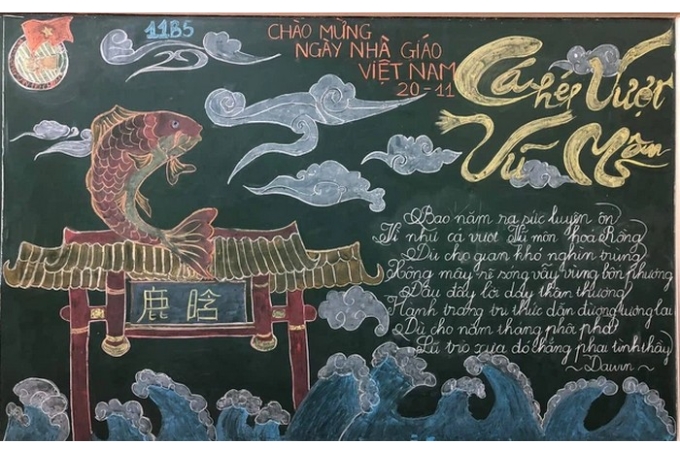 11B5
CHÀO MỪNG
NGÀY NHÀ GIÁO
VIỆT NAM
20-11
Cá chép Vượt
Vũ Môn
Bao năm ra sức luyện ôn
Ví như cá vượt Vũ môn hoá Rồng
Dù cho gian khó nghìn trùng
mây rẽ sóng vẫy vùng bốn phương
Dấu đây lời dạy thân thương
Hành trang tri thức dẫn đường tương lai
Dù cho năm tháng phôi phai
Lũ trò xưa đó chẳng phai tình thầy
鹿晗